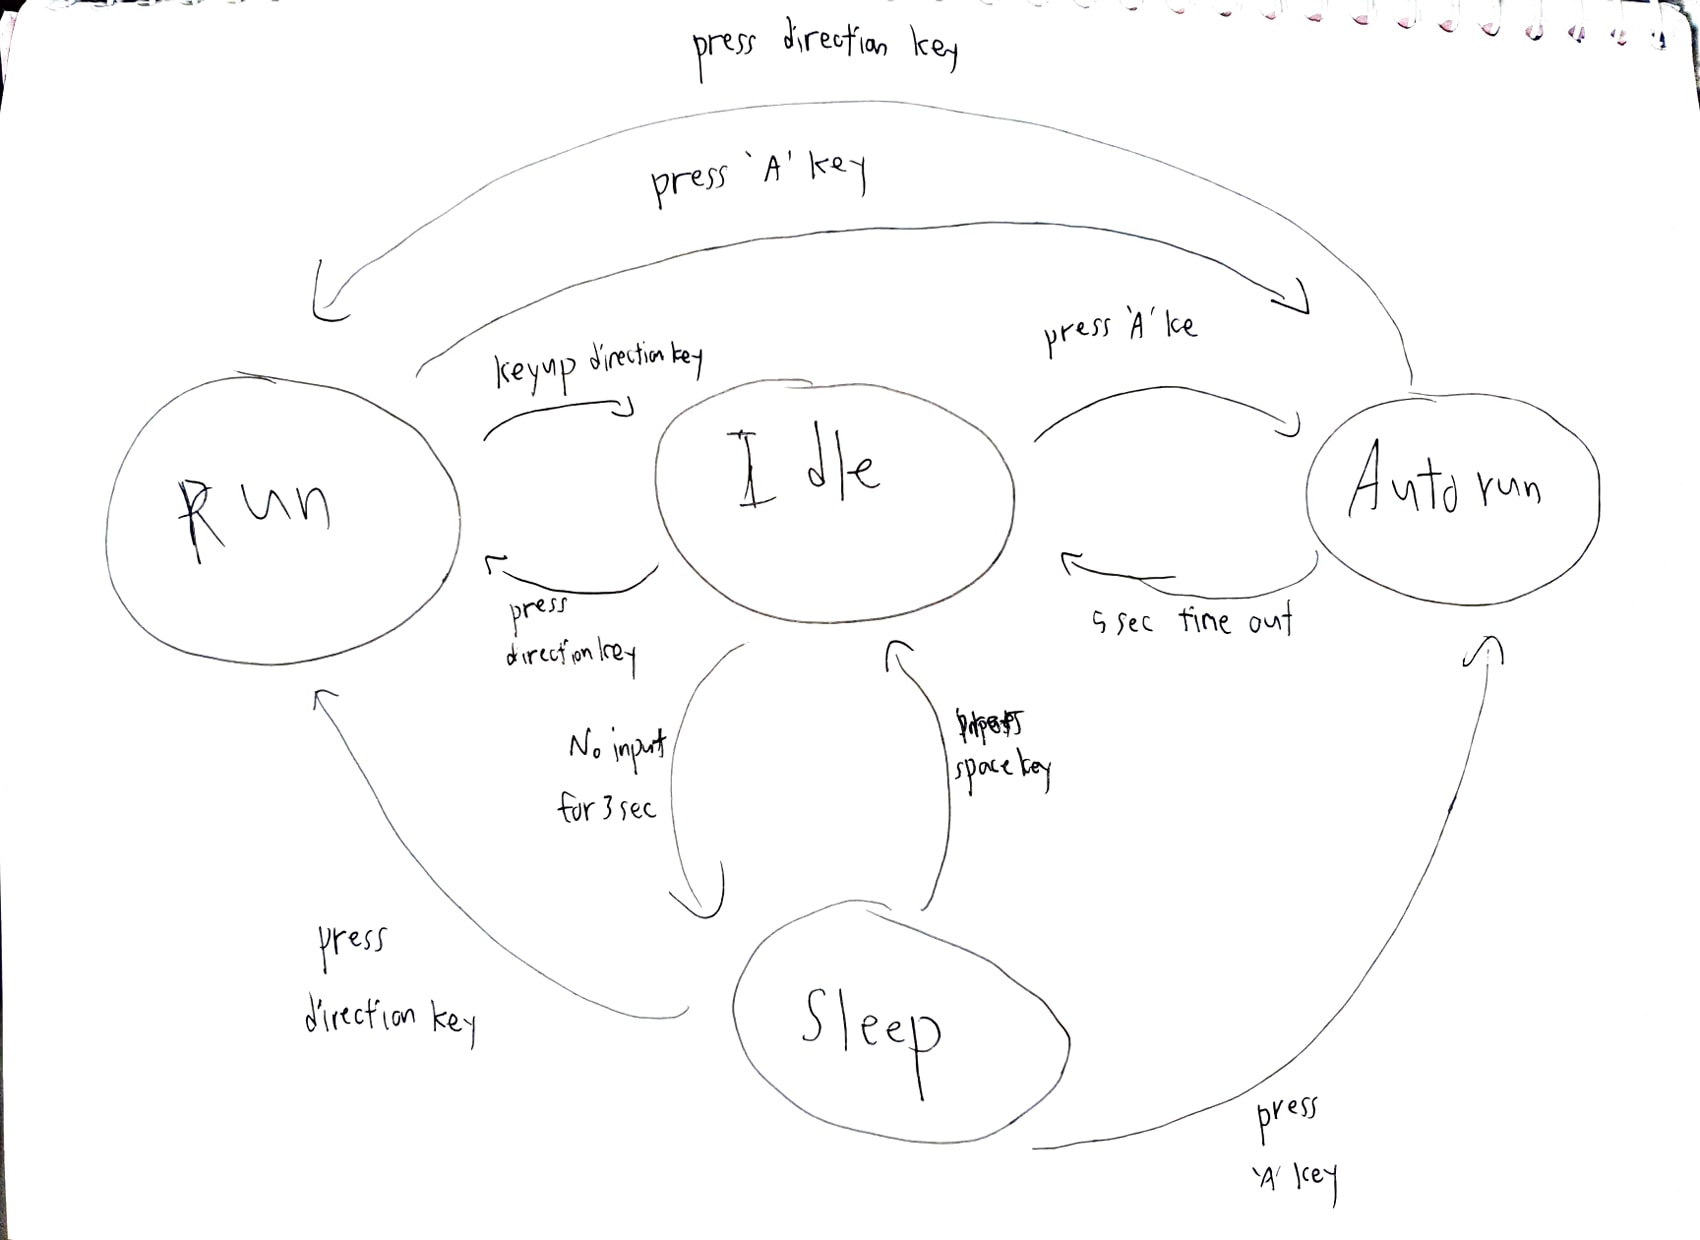 press direction key
press 'A' key
keyup direction key
press 'A' ke
Run
Idle
Auto run
press
direction key
5 sec time out
No input
for 3 sec
space key
press
direction key
Sleep
press
'A' key